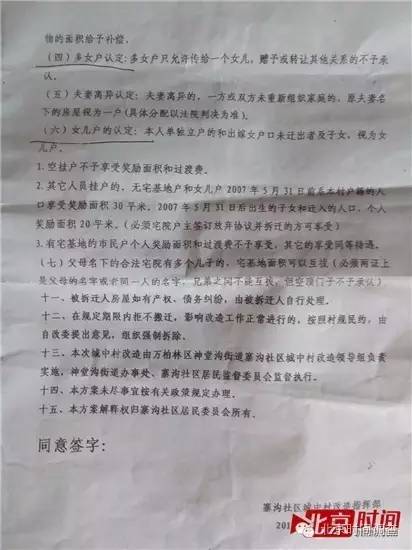 物的面积给予补偿。
（四）多女户认定：多女户只允许传给一个女儿，赠予或转让其他关系的不予承
认。
（五）夫妻离异认定：夫妻离异的，一方或双方未重新组织家庭的，原夫妻名
下的房屋视为一户（具体分配以法院判决为准）。
（六）女儿户的认定：本人单独立户的和出嫁女户口未迁出者及子女，视为女
儿户。
1.空挂户不予享受奖励面积和过渡费。
2.其它人员挂户的，无宅基地户和女儿户 2007 年 5 月 31 日前系本村户籍的人
口享受奖励面积 30 平米。2007 年 5 月 31 日后出生的子女和迁入的人口，个人
奖励面积 20 平米。（必须宅院户主签订放弃协议并拆迁的方可享受）
3.有宅基地的市民户个人奖励面积和过渡费不予享受，其它的享受同等待遇。
（七）父母名下的合法宅院有多个儿子的，宅基地面积可以互找（必须两证上
是父母的名字或老同一人的名字，兄弟之间不能互找，但空顶门子不予承认）
十一、被拆迁人房屋如有产权、债务纠纷，由被拆迁人自行处理。
十二、在规定期限内拒不搬迁，影响改造工作正常进行的，按照村规民约，由
自改委提出意见，组织强制拆除。
十三、本次城中村改造由万柏林区神堂沟街道寨沟社区城中村改造领导组负责
实施，神堂沟街道办事处、寨沟社区居民监督委员会监督执行。
十四、本方案未尽事宜按有关政策规定办理。
十五、本方案解释权归寨沟社区居民委员会所有。
同意签字：
寨沟社区城中村改造指挥部
201
北京时间